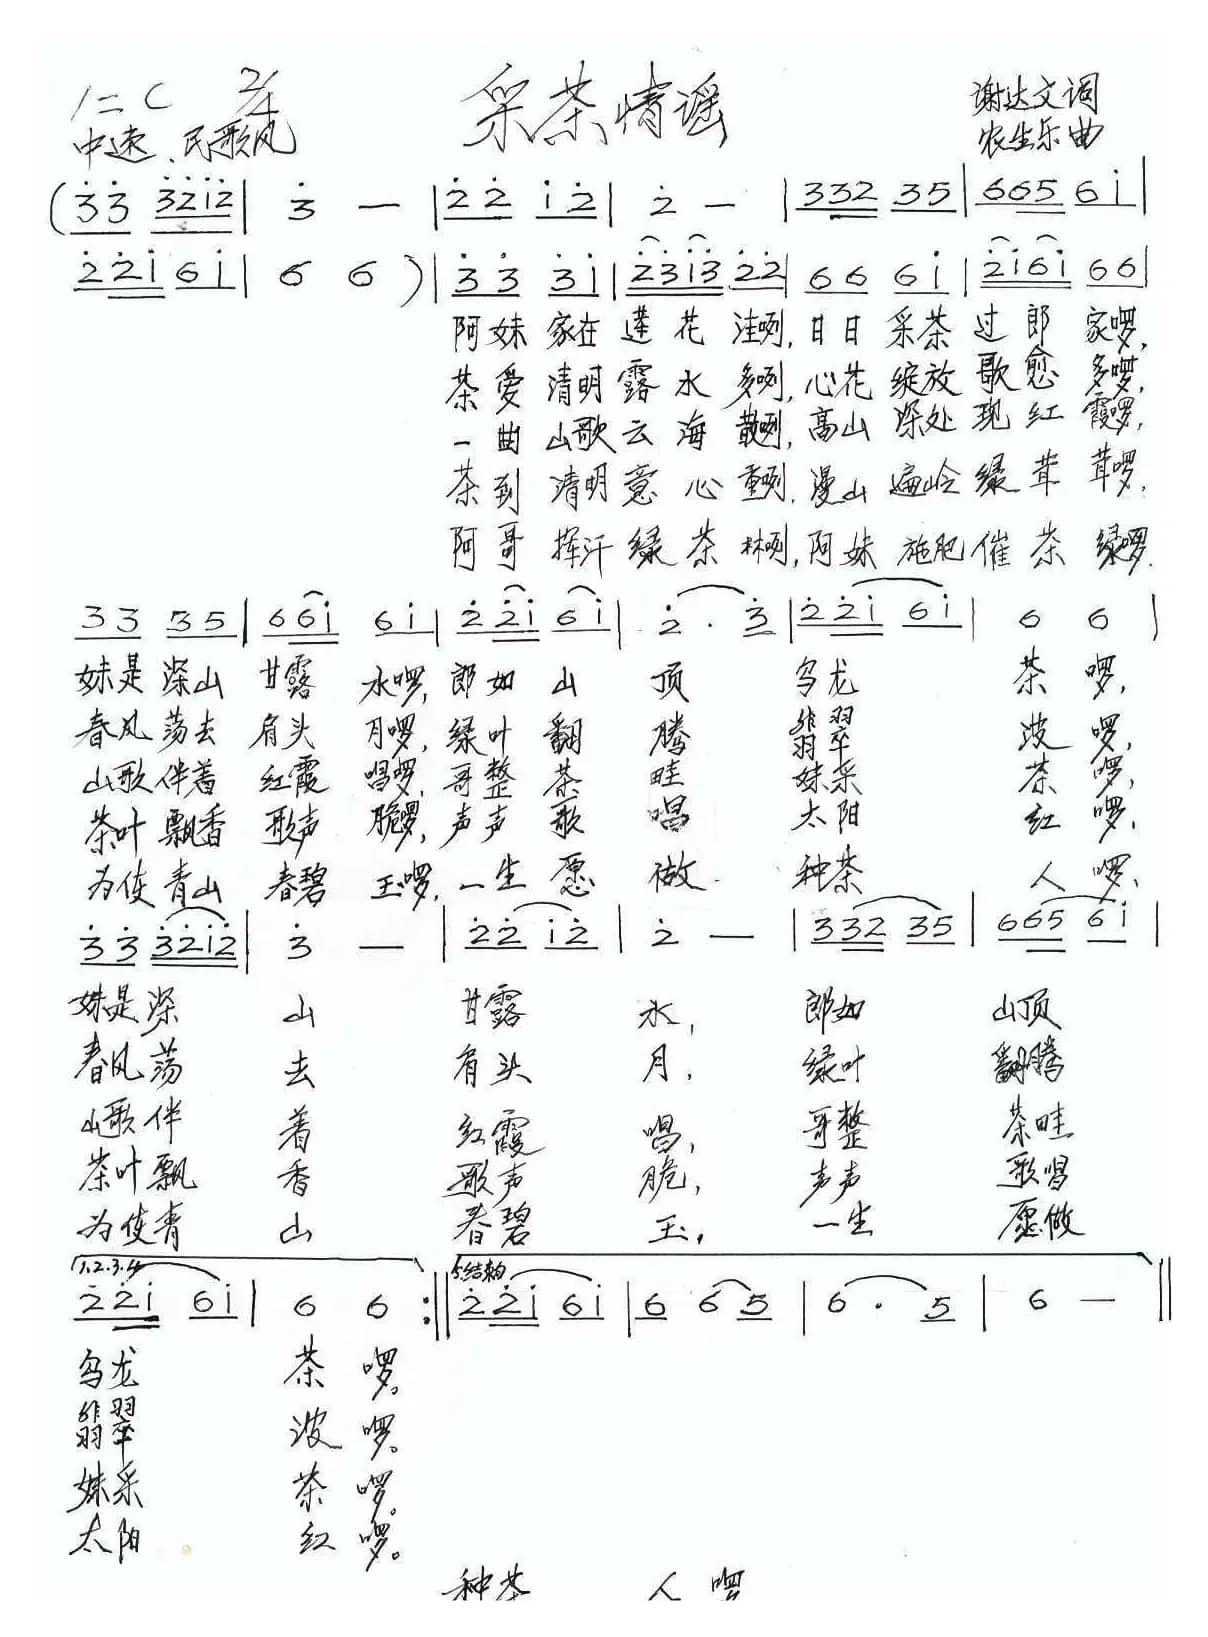 1=C 2/4 采茶情谣 谢达文词
中速、民歌风 农生乐曲
(33 3212| 3 — |22 12| 2 — |332 35|665 61|
221 61| 6 6 )|33 31|2313 22|66 61|2161 66|
阿妹家在莲花洼咧,甘日采茶过郎家啰,
茶爱清明露水多咧,心花绽放歌愈多啰,
一曲山歌云海散咧,高山深处现红霞啰,
茶到清明意心重咧,漫山遍岭绿茸茸啰,
阿哥挥汗绿茶林咧,阿妹施肥催茶绿啰.
33 35|661 61|221 61|2 . 3|221 61| 6 6 |
妹是深山甘露水啰,郎如山顶乌龙茶啰,
春风荡去肩头月啰,绿叶翻腾翡翠波啰,
山歌伴着红霞唱啰,哥整茶畦妹采茶啰,
茶叶飘香歌声脆啰,声声歌唱太阳红啰,
为使青山春碧玉啰,一生愿做种茶人啰、
33 3212| 3 — |22 12| 2 — |332 35|665 61|
妹是深山甘露水,郎如山顶
春风荡去肩头月,绿叶翻腾
山歌伴着红霞唱,哥整茶畦
茶叶飘香歌声脆,声声歌唱
为使青山春碧玉,一生愿做
1.2.3.4 5.结束句
221 61| 6 6 :‖221 61|6 65|6 . 5| 6 — ‖
乌龙茶啰。
翡翠波啰。
妹采茶啰。
太阳红啰。
种茶人啰